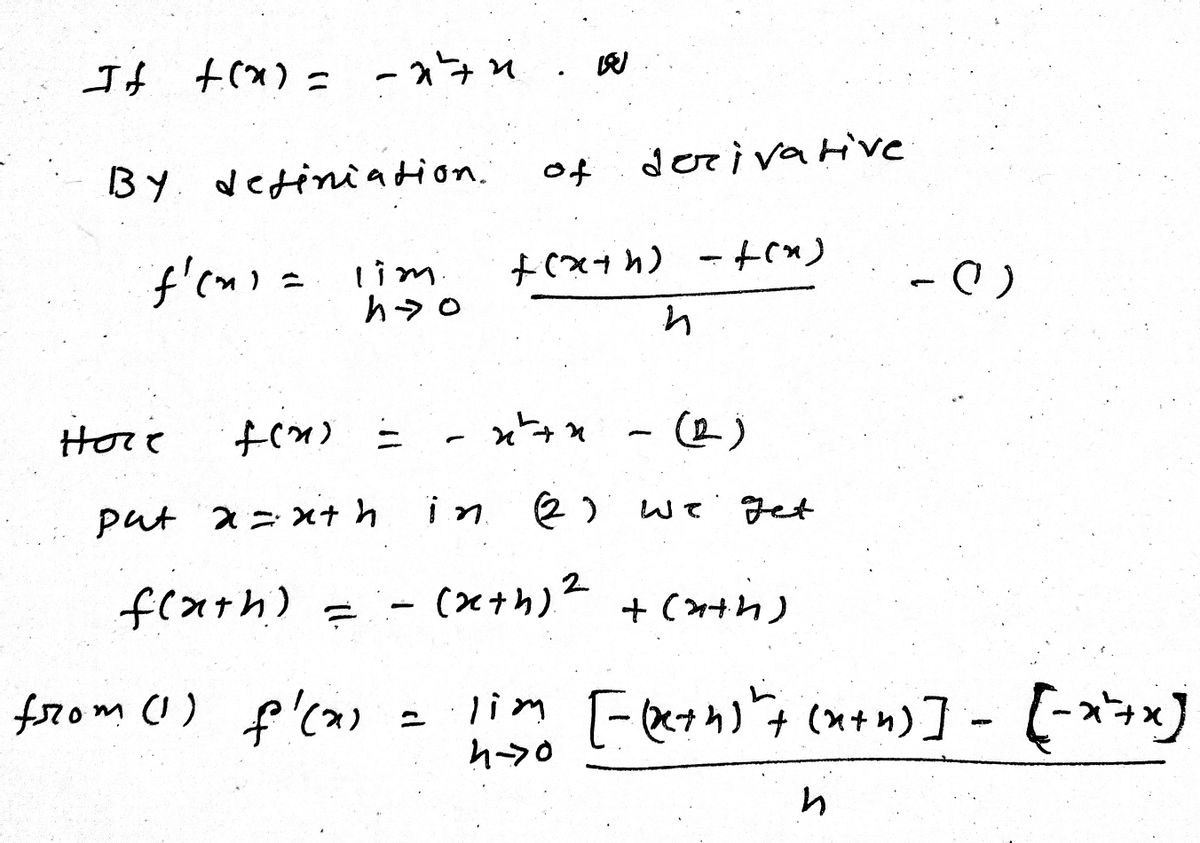 If f(x) = -x²+x .
By definiation. of derivative
f'(x) = lim h→0 f(x+h) - f(x) / h - (1)
Here f(x) = - x²+x - (2)
put x = x+h in (2) we get
f(x+h) = - (x+h)² + (x+h)
from (1) f'(x) = lim h→0 [-(x+h)²+ (x+h)] - [-x²+x] / h